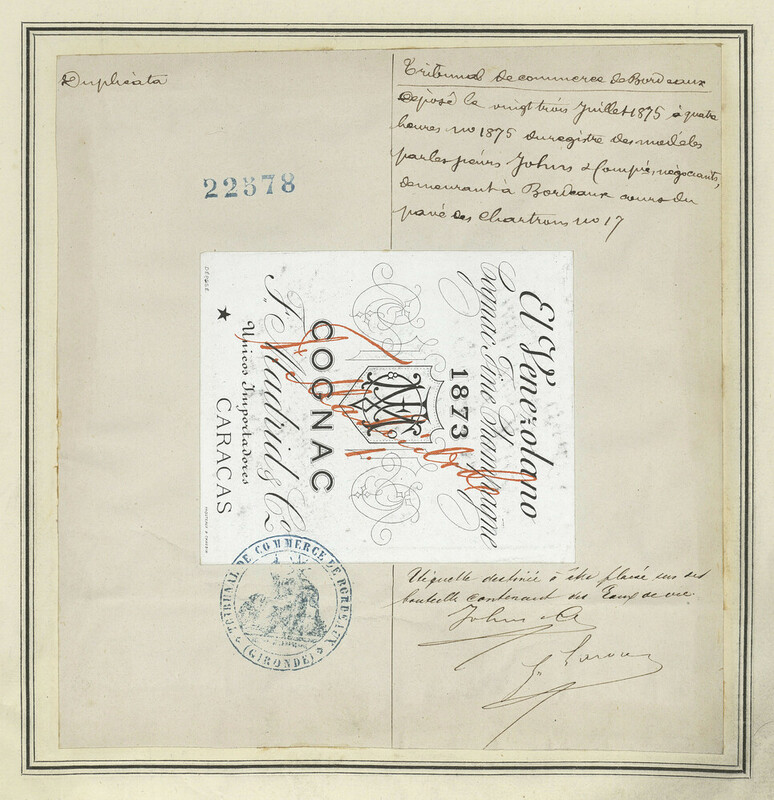 Duplicata
22578
Tribunal de commerce de Bordeaux
déposé le vingt trois Juillet 1875 à quatre
heures no 1875 du registre des modèles
par les sieurs Johns & Compie, négociants,
demeurant à Bordeaux cours du
pavé des Chartrons no 17
El Venezolano
Cognac Fine Champagne
1873
COGNAC
F. Madrid & Co
Unicos Importadores
CARACAS
DÉPOSÉ
TRIBUNAL DE COMMERCE DE BORDEAUX
(GIRONDE)
Etiquette destinée à être placée sur des
bouteille contenant des Eaux de vie
Johns & Co